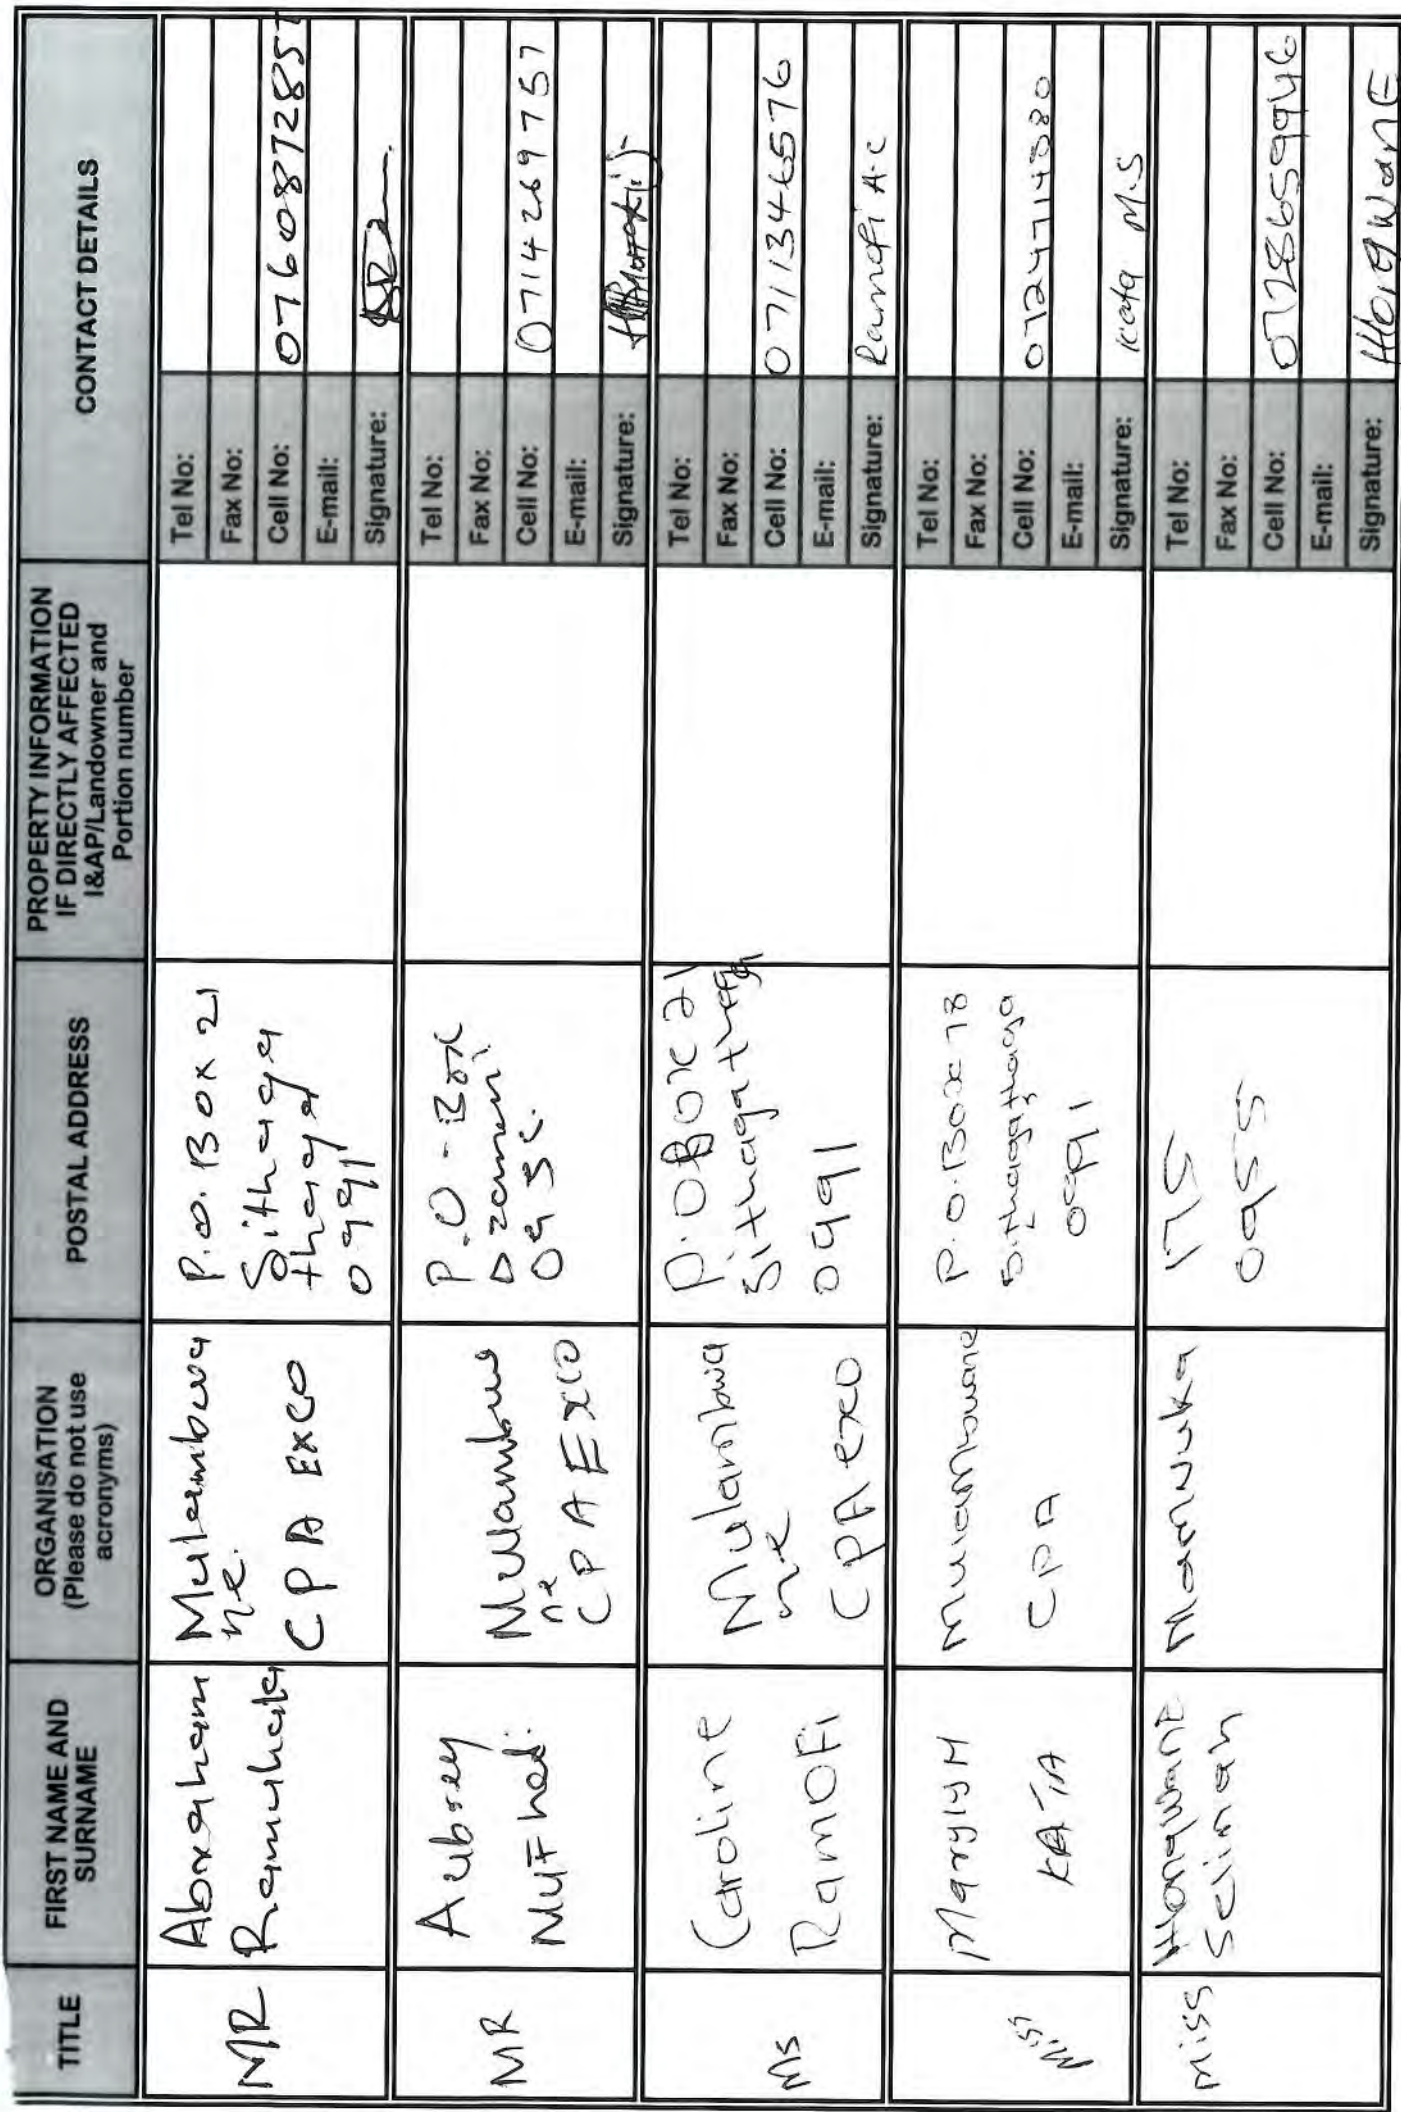 TITLE
FIRST NAME AND
SURNAME
ORGANISATION
(Please do not use
acronyms)
POSTAL ADDRESS
PROPERTY INFORMATION
IF DIRECTLY AFFECTED
I&AP/Landowner and
Portion number
CONTACT DETAILS
MR
Abraham
Ramuhala
Mulambwa
ne.
CPA EXCO
P.O. Box 21
Sithaga
thaga
0991
Tel No:
Fax No:
Cell No: 0760872857
E-mail:
Signature:
MR
Aubrey
Mufhadi
Mulambwa
ne
CPA Exco
P.O-Box
Dzanani
0955.
Tel No:
Fax No:
Cell No: 0714269757
E-mail:
Signature:
Ms
Caroline
Ramofi
Mulambwa
ne
CPA exco
P.O Box 21
Sithagathaga
0991
Tel No:
Fax No:
Cell No: 0711346576
E-mail:
Signature: Ramofi A.C
Miss
Maryly M
KATA
Mulambwane
CPA
P.O.Box 78
Sithagathaga
0991
Tel No:
Fax No:
Cell No: 0724714380
E-mail:
Signature: Kata M.S
Miss
Hongwane
Selinah
Mamuka
175
0955
Tel No:
Fax No:
Cell No: 0728659946
E-mail:
Signature: Hongwane